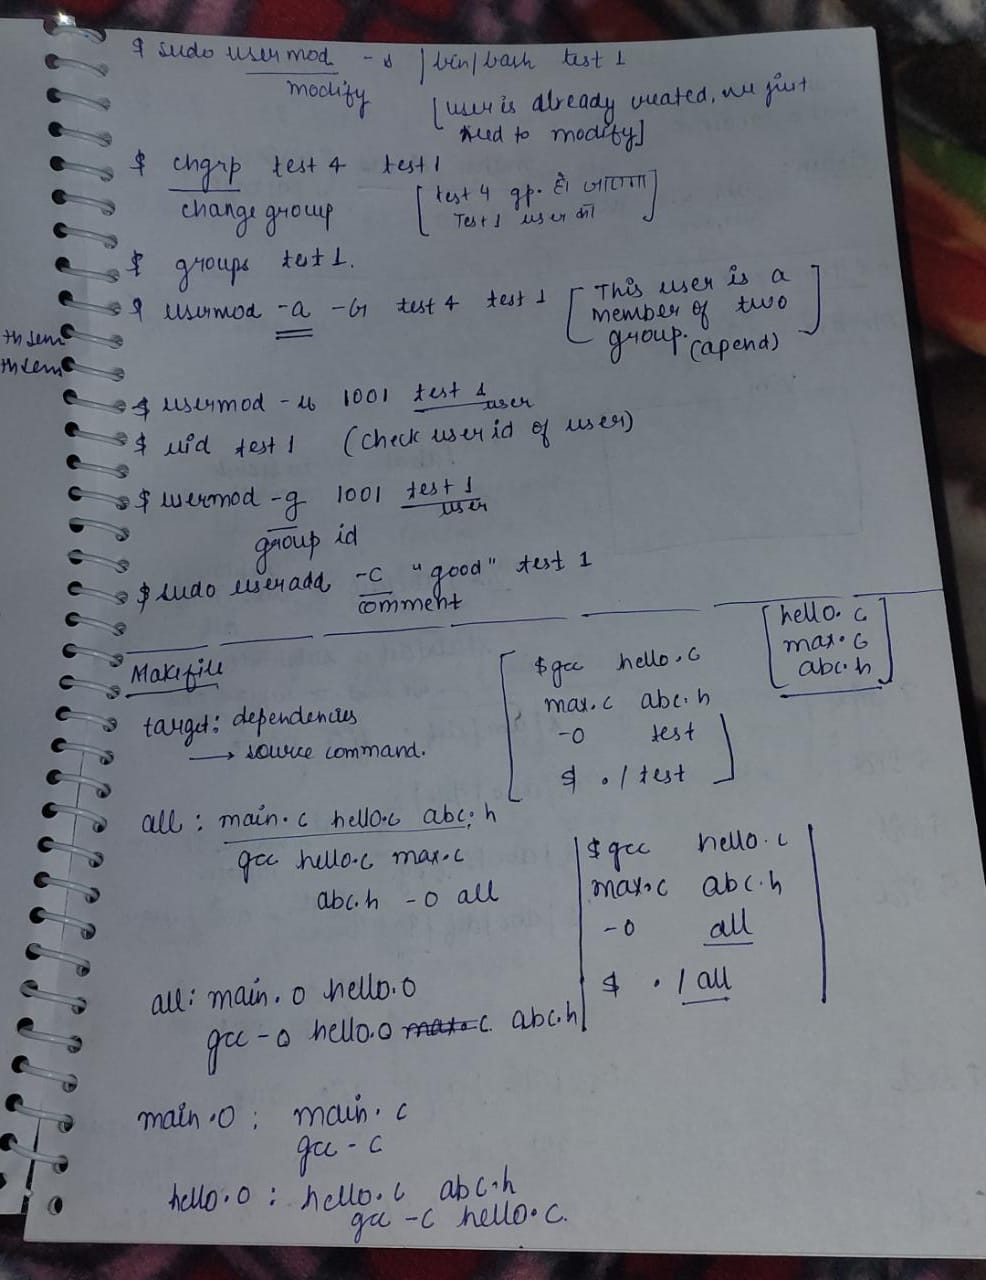 $ sudo usermod -s /bin/bash test 1
modify
[user is already created, we just
need to modify]
$ chgrp test 4 test 1
change group
[test 4 gp. हो जाएगा
Test 1 user का]
$ groups test 1.
$ usermod -a -G test 4 test 1
[This user is a
member of two
group.
(apend)]
th sem
th sem
$ usermod -u 1001 test 1
user
$ uid test 1 (check user id of user)
$ usermod -g 1001 test 1
user
group id
$ sudo useradd -c "good" test 1
comment
Makefile
target: dependencies
→ source command.
[$gcc hello.c
max.c abc.h
-o test
$ ./test]
[hello.c
max.c
abc.h]
all : main.c hello.c abc.h
gcc hello.c max.c
abc.h -o all
$gcc hello.c
max.c abc.h
-o all
$ ./all
all: main.o hello.o
gcc -o hello.o max.c abc.h
main.o : main.c
gcc -c
hello.o : hello.c abc.h
gcc -c hello.c.